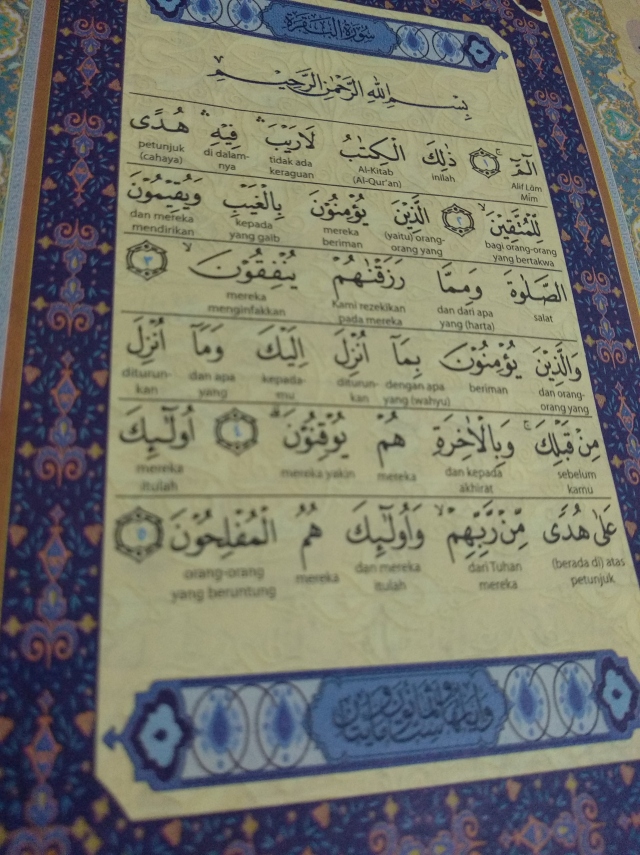 سُورَةُ الْبَقَرَةِ
بِسْمِ اللّٰهِ الرَّحْمٰنِ الرَّحِيْمِ
الۤمّۤ ۚ ١ ذٰلِكَ الْكِتٰبُ لَا رَيْبَ ۛ فِيْهِ ۛ هُدًى
Alif Lām Mīm inilah Al-Kitab (Al-Qur'an) tidak ada keraguan di dalam-nya petunjuk (cahaya)
لِّلْمُتَّقِيْنَ ۙ ٢ الَّذِيْنَ يُؤْمِنُوْنَ بِالْغَيْبِ وَيُقِيْمُوْنَ
bagi orang-orang yang bertakwa (yaitu) orang-orang yang mereka beriman kepada yang gaib dan mereka mendirikan
الصَّلٰوةَ وَمِمَّا رَزَقْنٰهُمْ يُنْفِقُوْنَ ۙ ٣
salat dan dari apa yang (harta) Kami rezekikan pada mereka mereka menginfakkan
وَالَّذِيْنَ يُؤْمِنُوْنَ بِمَآ اُنْزِلَ اِلَيْكَ وَمَآ اُنْزِلَ
dan orang-orang yang beriman dengan apa yang (wahyu) diturun-kan kepada-mu dan apa yang diturun-kan
مِنْ قَبْلِكَ ۚ وَبِالْاٰخِرَةِ هُمْ يُوْقِنُوْنَ ۗ ٤ اُولٰۤىِٕكَ
sebelum kamu dan kepada akhirat mereka mereka yakin mereka itulah
عَلٰى هُدًى مِّنْ رَّبِّهِمْ ۙ وَاُولٰۤىِٕكَ هُمُ الْمُفْلِحُوْنَ ٥
(berada di) atas petunjuk dari Tuhan mereka dan mereka itulah mereka orang-orang yang beruntung